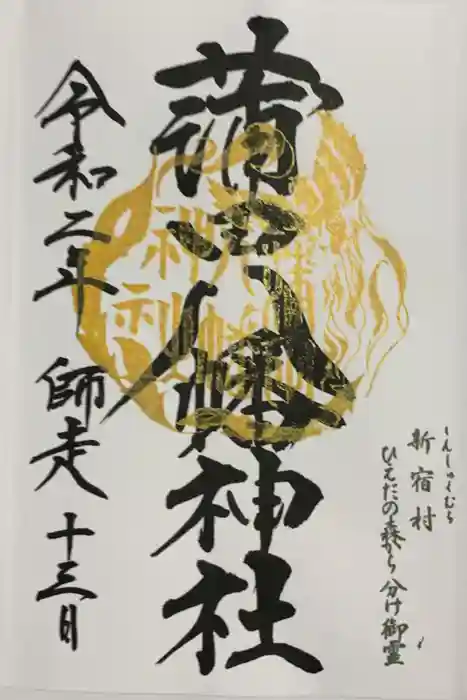 しんしゅくむら
新宿村
ひえだの森から 分け御霊
蒲田八幡神社
蒲田
八幡
神社
令和二年 師走 十三日